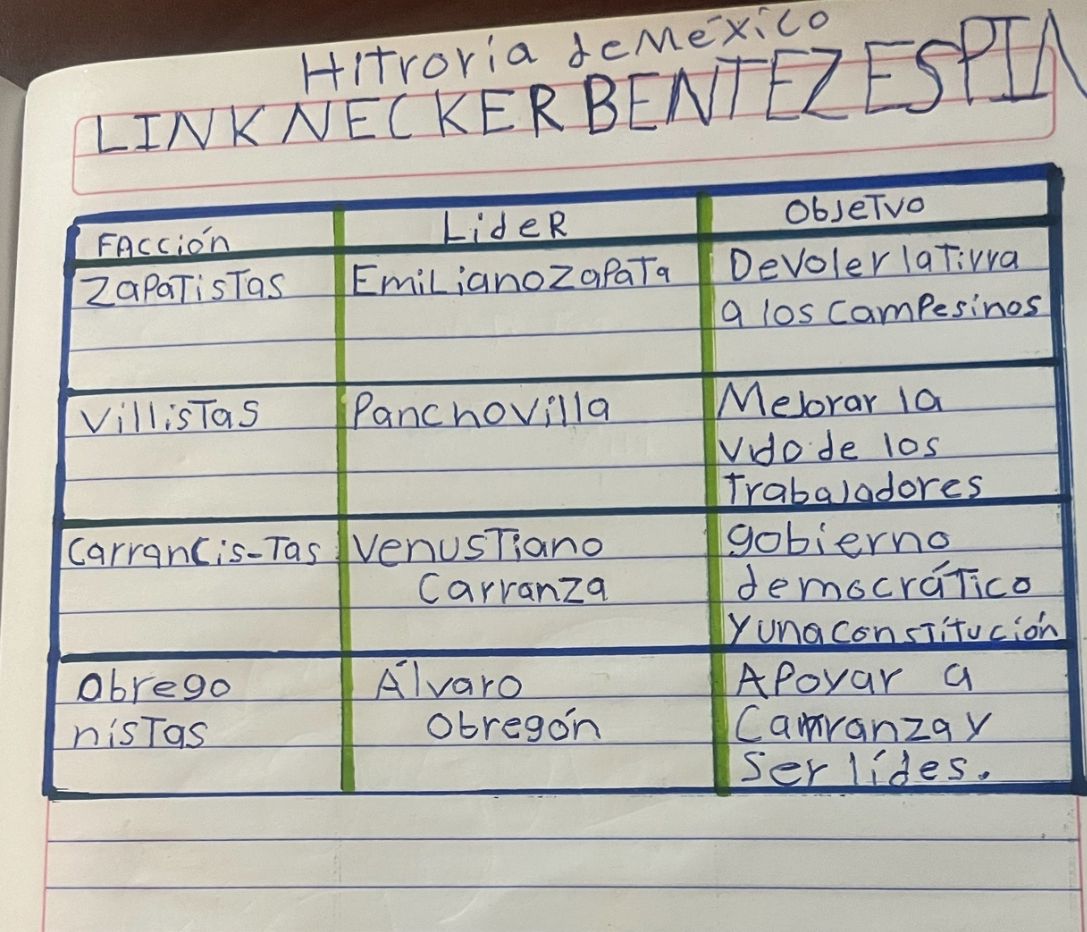 Hitroria de México
LINKNECKER BENTEZ ESPIN
FAcción LideR ObJeTvo
ZaPaTisTas EmiLiano ZaPaTa DeVoler la Tivra
a los CamPesinos
VillisTas Pancho Villa Mejorar la
vido de los
Trabajadores
Carrancis-Tas VenusTiano gobierno
Carranza democráTico
y una consTiTución
Obrego Álvaro APoyar a
nisTas Obregón Carranza y
Ser lides.